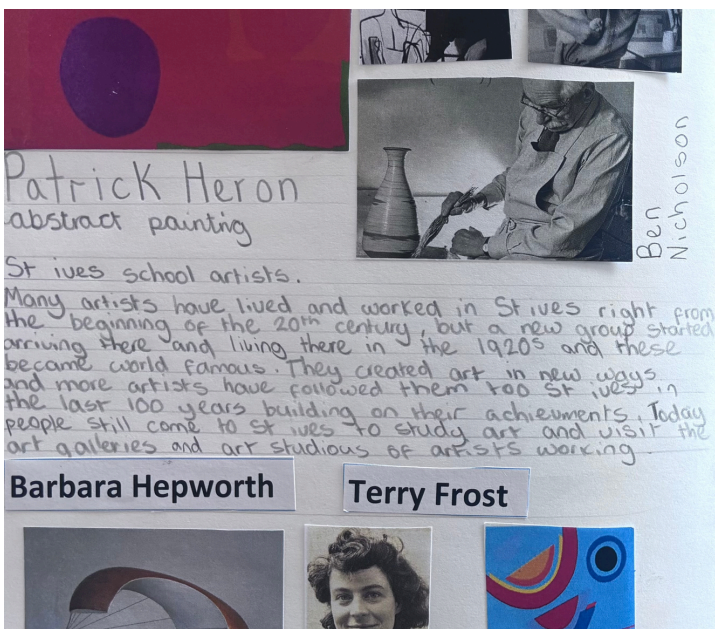 Patrick Heron
abstract painting
Ben
Nicholson
St ives school artists.
Many artists have lived and worked in St ives right from
the beginning of the 20th century, but a new group started
arriving there and living there in the 1920s and these
became world famous. They created art in new ways
and more artists have followed them too St ives in
the last 100 years building on their achievments. Today
people still come to st ives to study art and visit the
art galleries and art studious of artists working.
Barbara Hepworth
Terry Frost